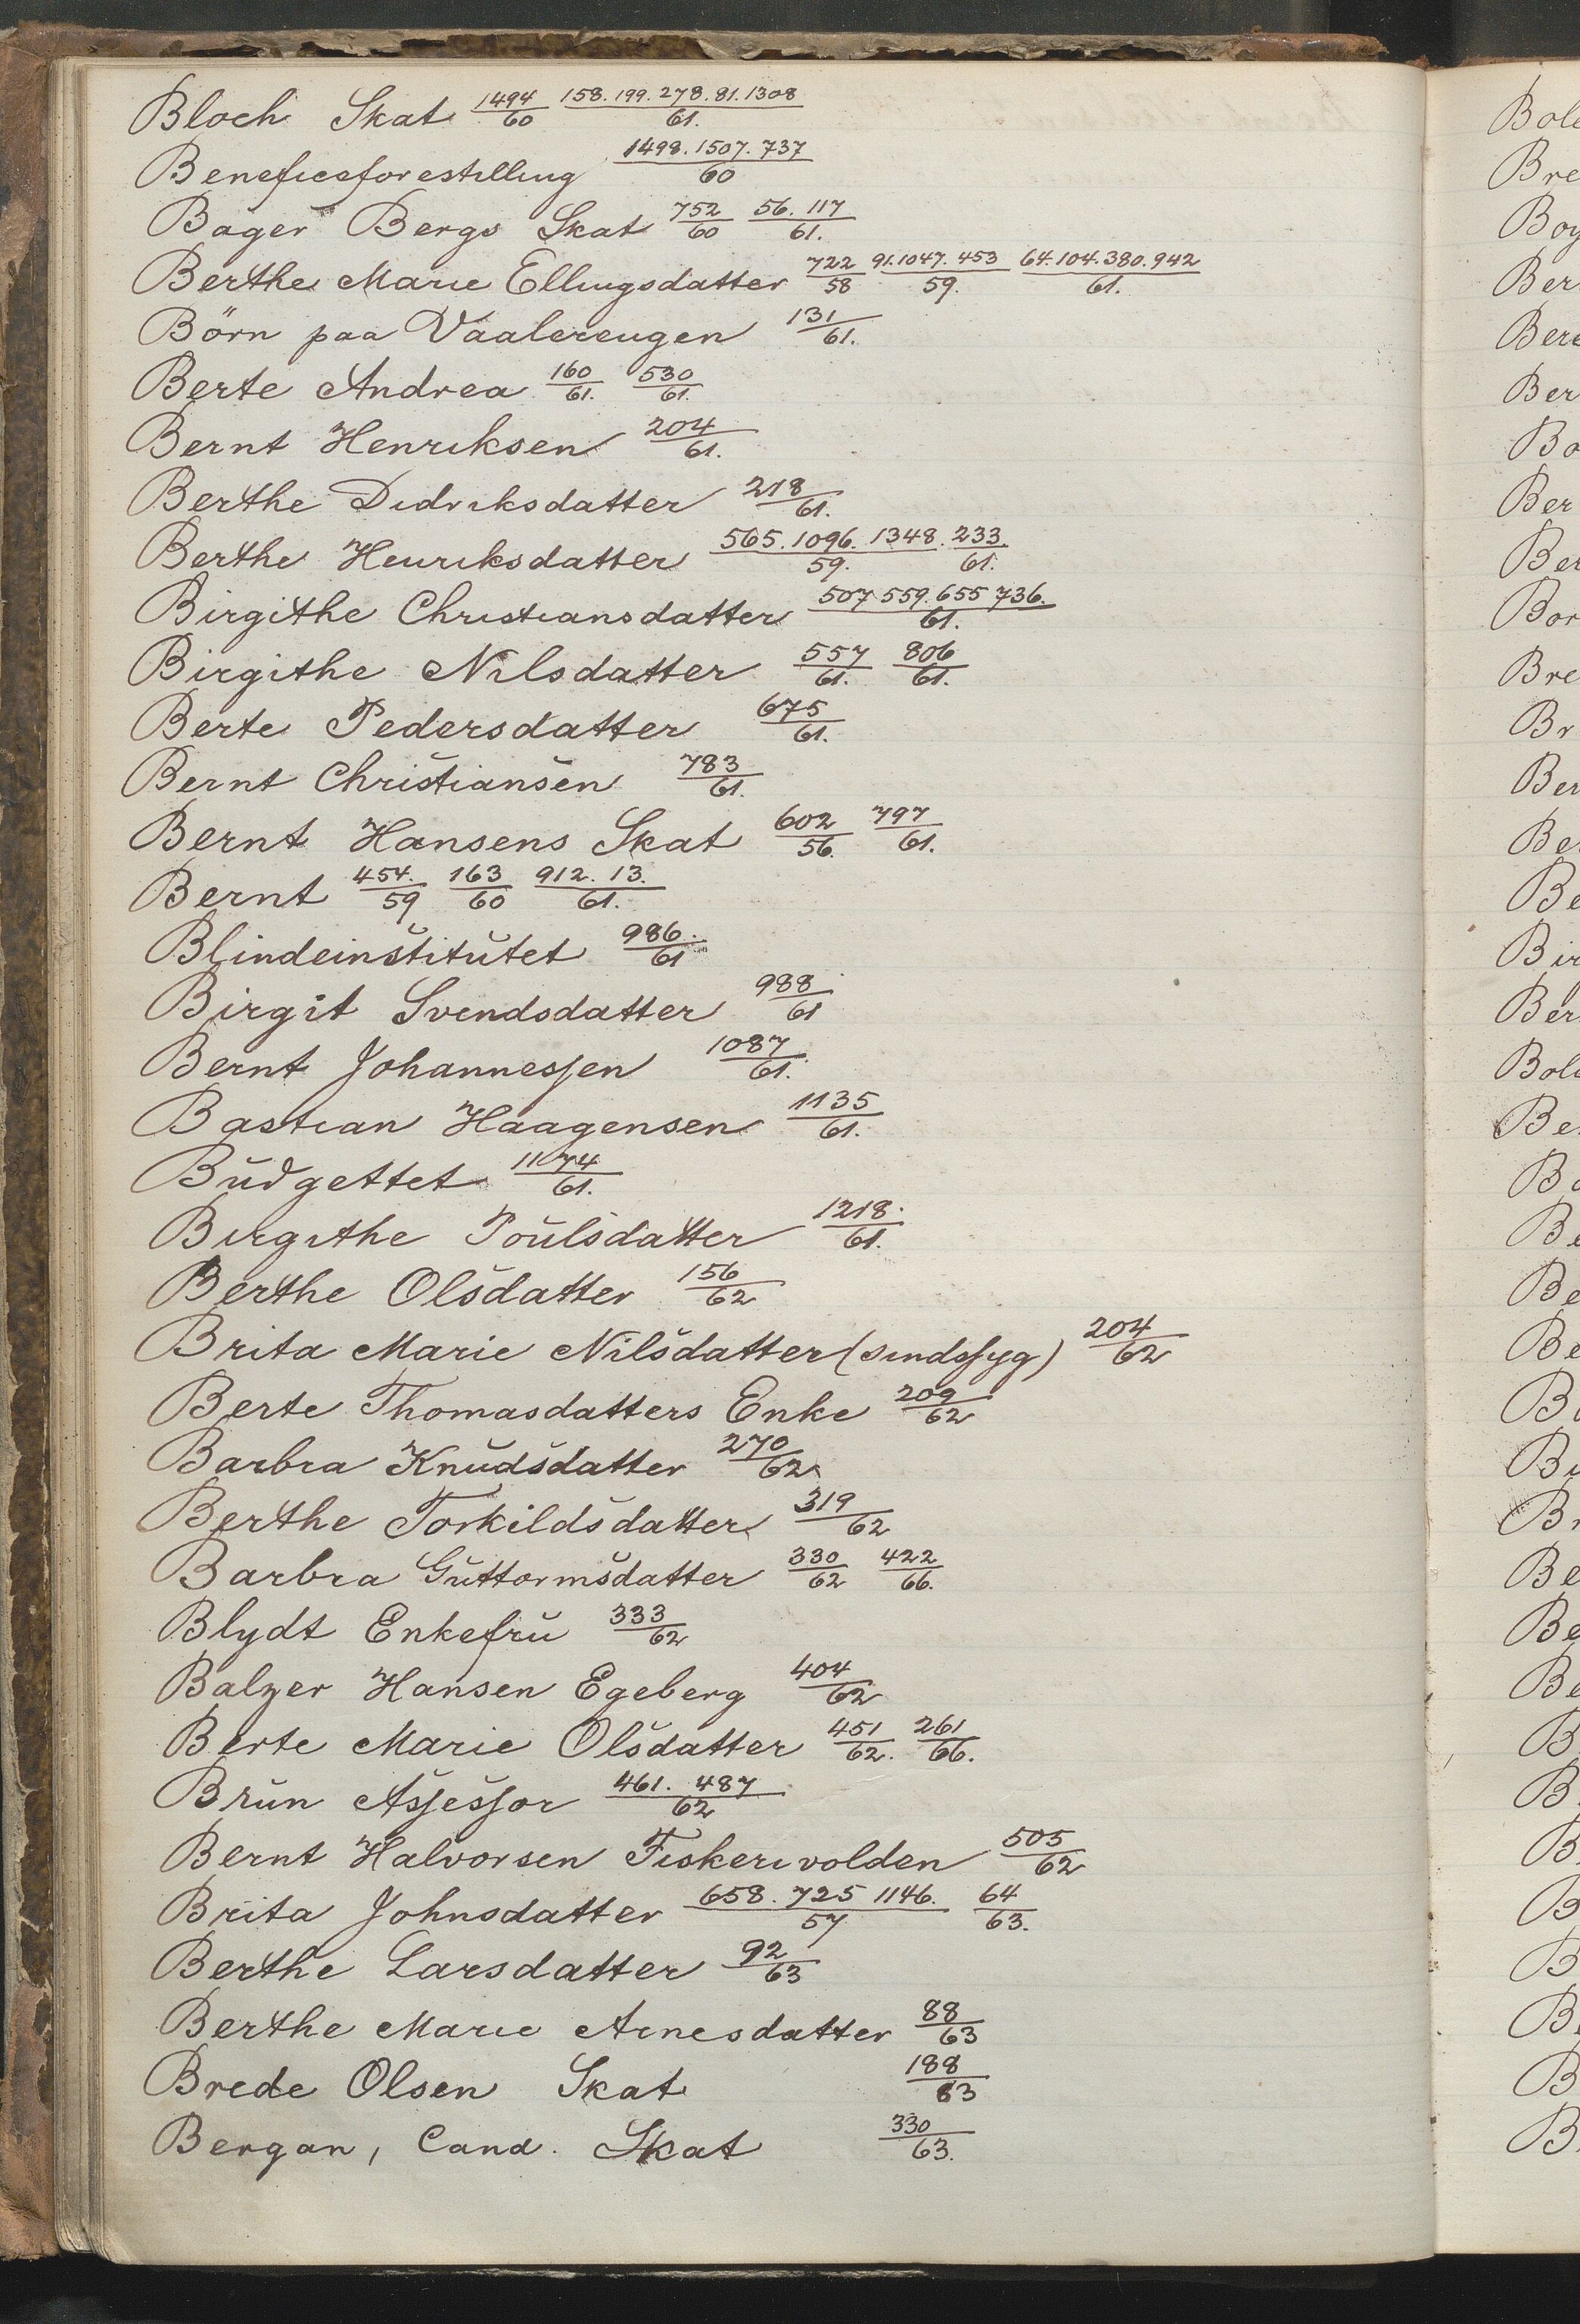 Bloch Skat 1494/60 158.199.278.81.1308/61.
Beneficeforestilling 1498.1507.737/60
Bager Bergs Skat 752/60 56.117/61.
Berthe Marie Ellingsdatter 722/58 91.1047.453/59. 64.104.380.942/61.
Börn paa Vaalerengen 131/61.
Berte Andrea 160/61. 530/61.
Bernt Henriksen 204/61.
Berthe Didriksdatter 218/61.
Berthe Henriksdatter 565.1096.1348./59. 233/61.
Birgithe Christiansdatter 507 559.655 736./61.
Birgithe Nilsdatter 557/61. 806/61.
Berte Pedersdatter 675/61.
Bernt Christiansen 783/61.
Bernt Hansens Skat 602/56. 797/61.
Bernt 454./59 163/60 912.13./61.
Blindeinstitutet 986./61
Birgit Svendsdatter 988/61
Bernt Johannessen 1087/61.
Bastian Haagensen 1135/61.
Budgettet 1174/61.
Birgithe Poulsdatter 1218./61.
Berthe Olsdatter 156/62
Brita Marie Nilsdatter (sindssyg) 204/62
Berte Thomasdatters Enke 209/62
Barbra Knudsdatter 270/62
Berthe Torkildsdatter 319/62
Barbra Guttormsdatter 330/62 422/66.
Blydt Enkefru 333/62
Balzer Hansen Egeberg 404/62
Berte Marie Olsdatter 451/62. 261/66.
Brun Assessor 461. 487/62
Bernt Halvorsen Fiskerivolden 505/62
Brita Johnsdatter 658.725 1146./57 64/63.
Berthe Larsdatter 92/63
Berthe Marie Arnesdatter 88/63
Brede Olsen Skat 188/63
Bergan, Cand. Skat 330/63.